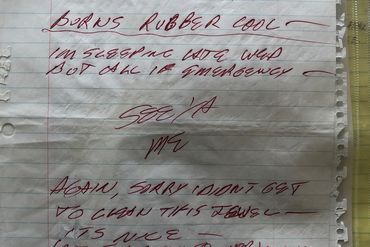 BURNS RUBBER COOL —
IM SLEEPING LATE WED
BUT CALL IF EMERGENCY —
SEE YA
ME
AGAIN, SORRY I DIDNT GET
TO CLEAN THIS JEWEL —
ITS NICE —